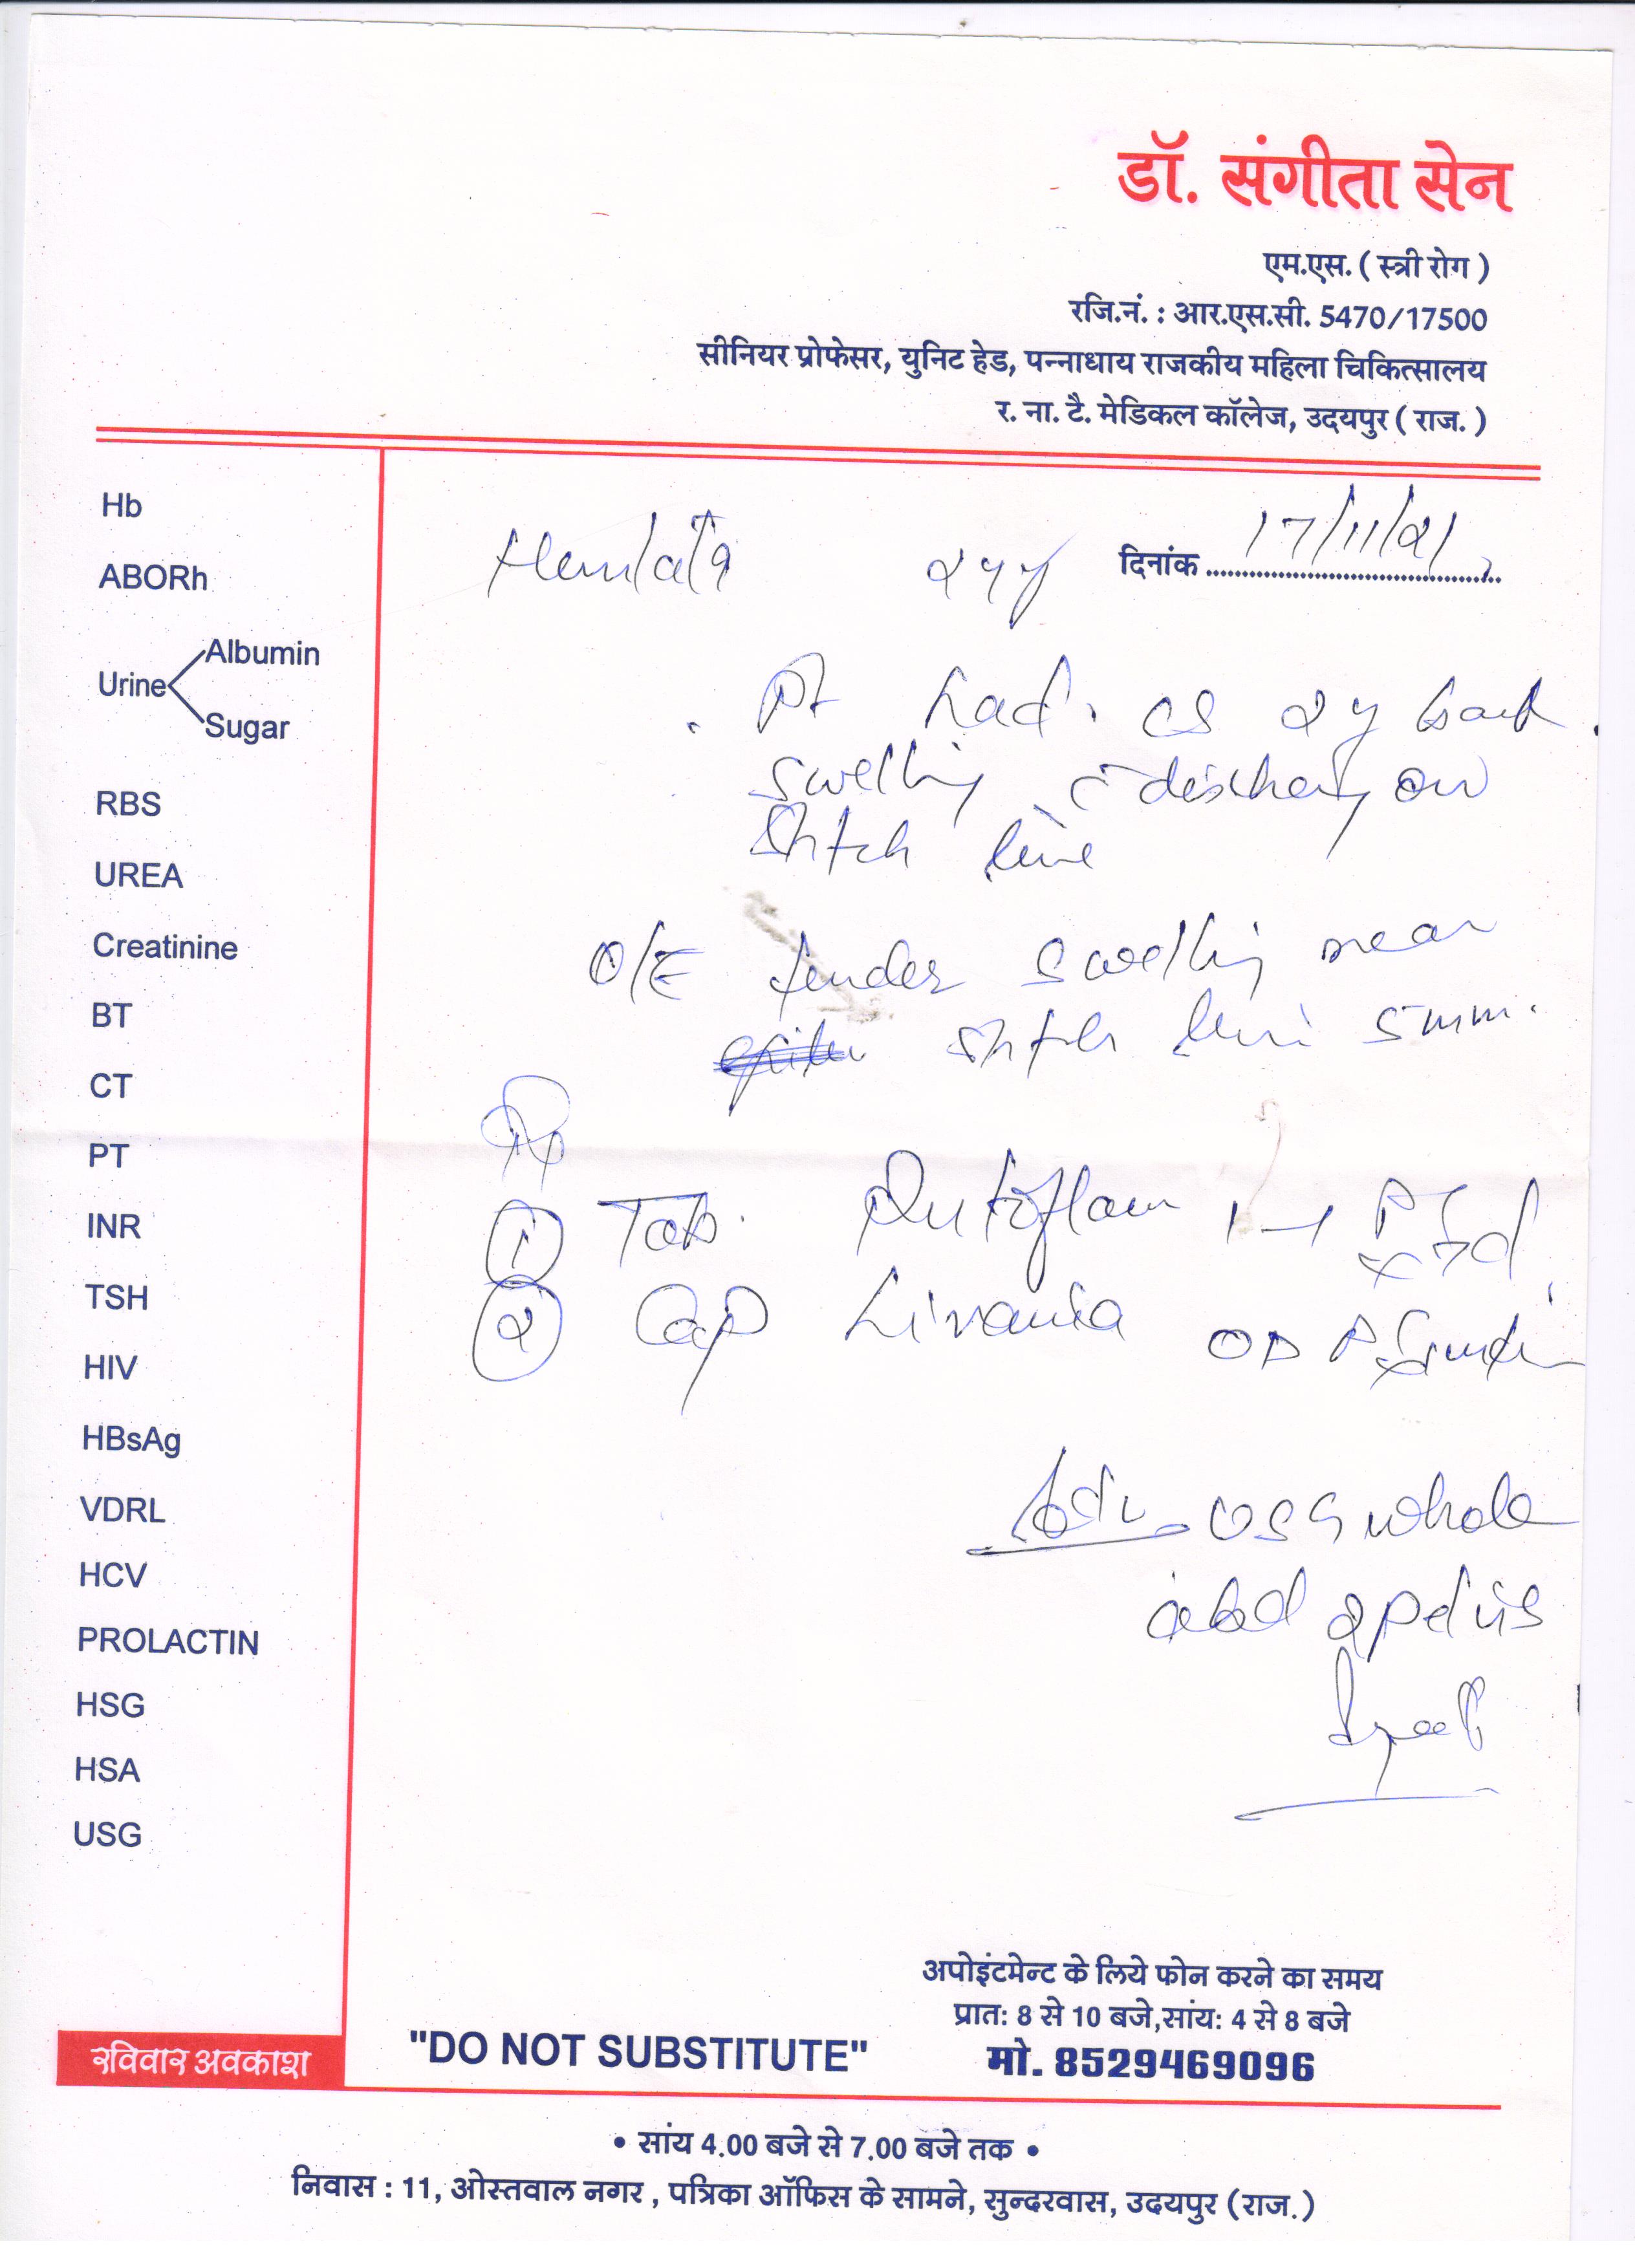 डॉ. संगीता सेन
एम.एस. ( स्त्री रोग )
रजि.नं. : आर.एस.सी. 5470/17500
सीनियर प्रोफेसर, युनिट हेड, पन्नाधाय राजकीय महिला चिकित्सालय
र. ना. टै. मेडिकल कॉलेज, उदयपुर ( राज. )
Hb
ABORh
Urine
Albumin
Sugar
RBS
UREA
Creatinine
BT
CT
PT
INR
TSH
HIV
HBsAg
VDRL
HCV
PROLACTIN
HSG
HSA
USG
Hemlata दिनांक 17/11/21
Pt had CS 2y back
swelling c discharge on
stitch line
O/E tender swelling near
stitch line 5mm.
① Tab.
② Cap OD
Adv USG whole
abd & pelvis
रविवार अवकाश
"DO NOT SUBSTITUTE"
अपोइंटमेन्ट के लिये फोन करने का समय
प्रात: 8 से 10 बजे,सांय: 4 से 8 बजे
मो. 8529469096
• सांय 4.00 बजे से 7.00 बजे तक •
निवास : 11, ओस्तवाल नगर , पत्रिका ऑफिस के सामने, सुन्दरवास, उदयपुर (राज.)